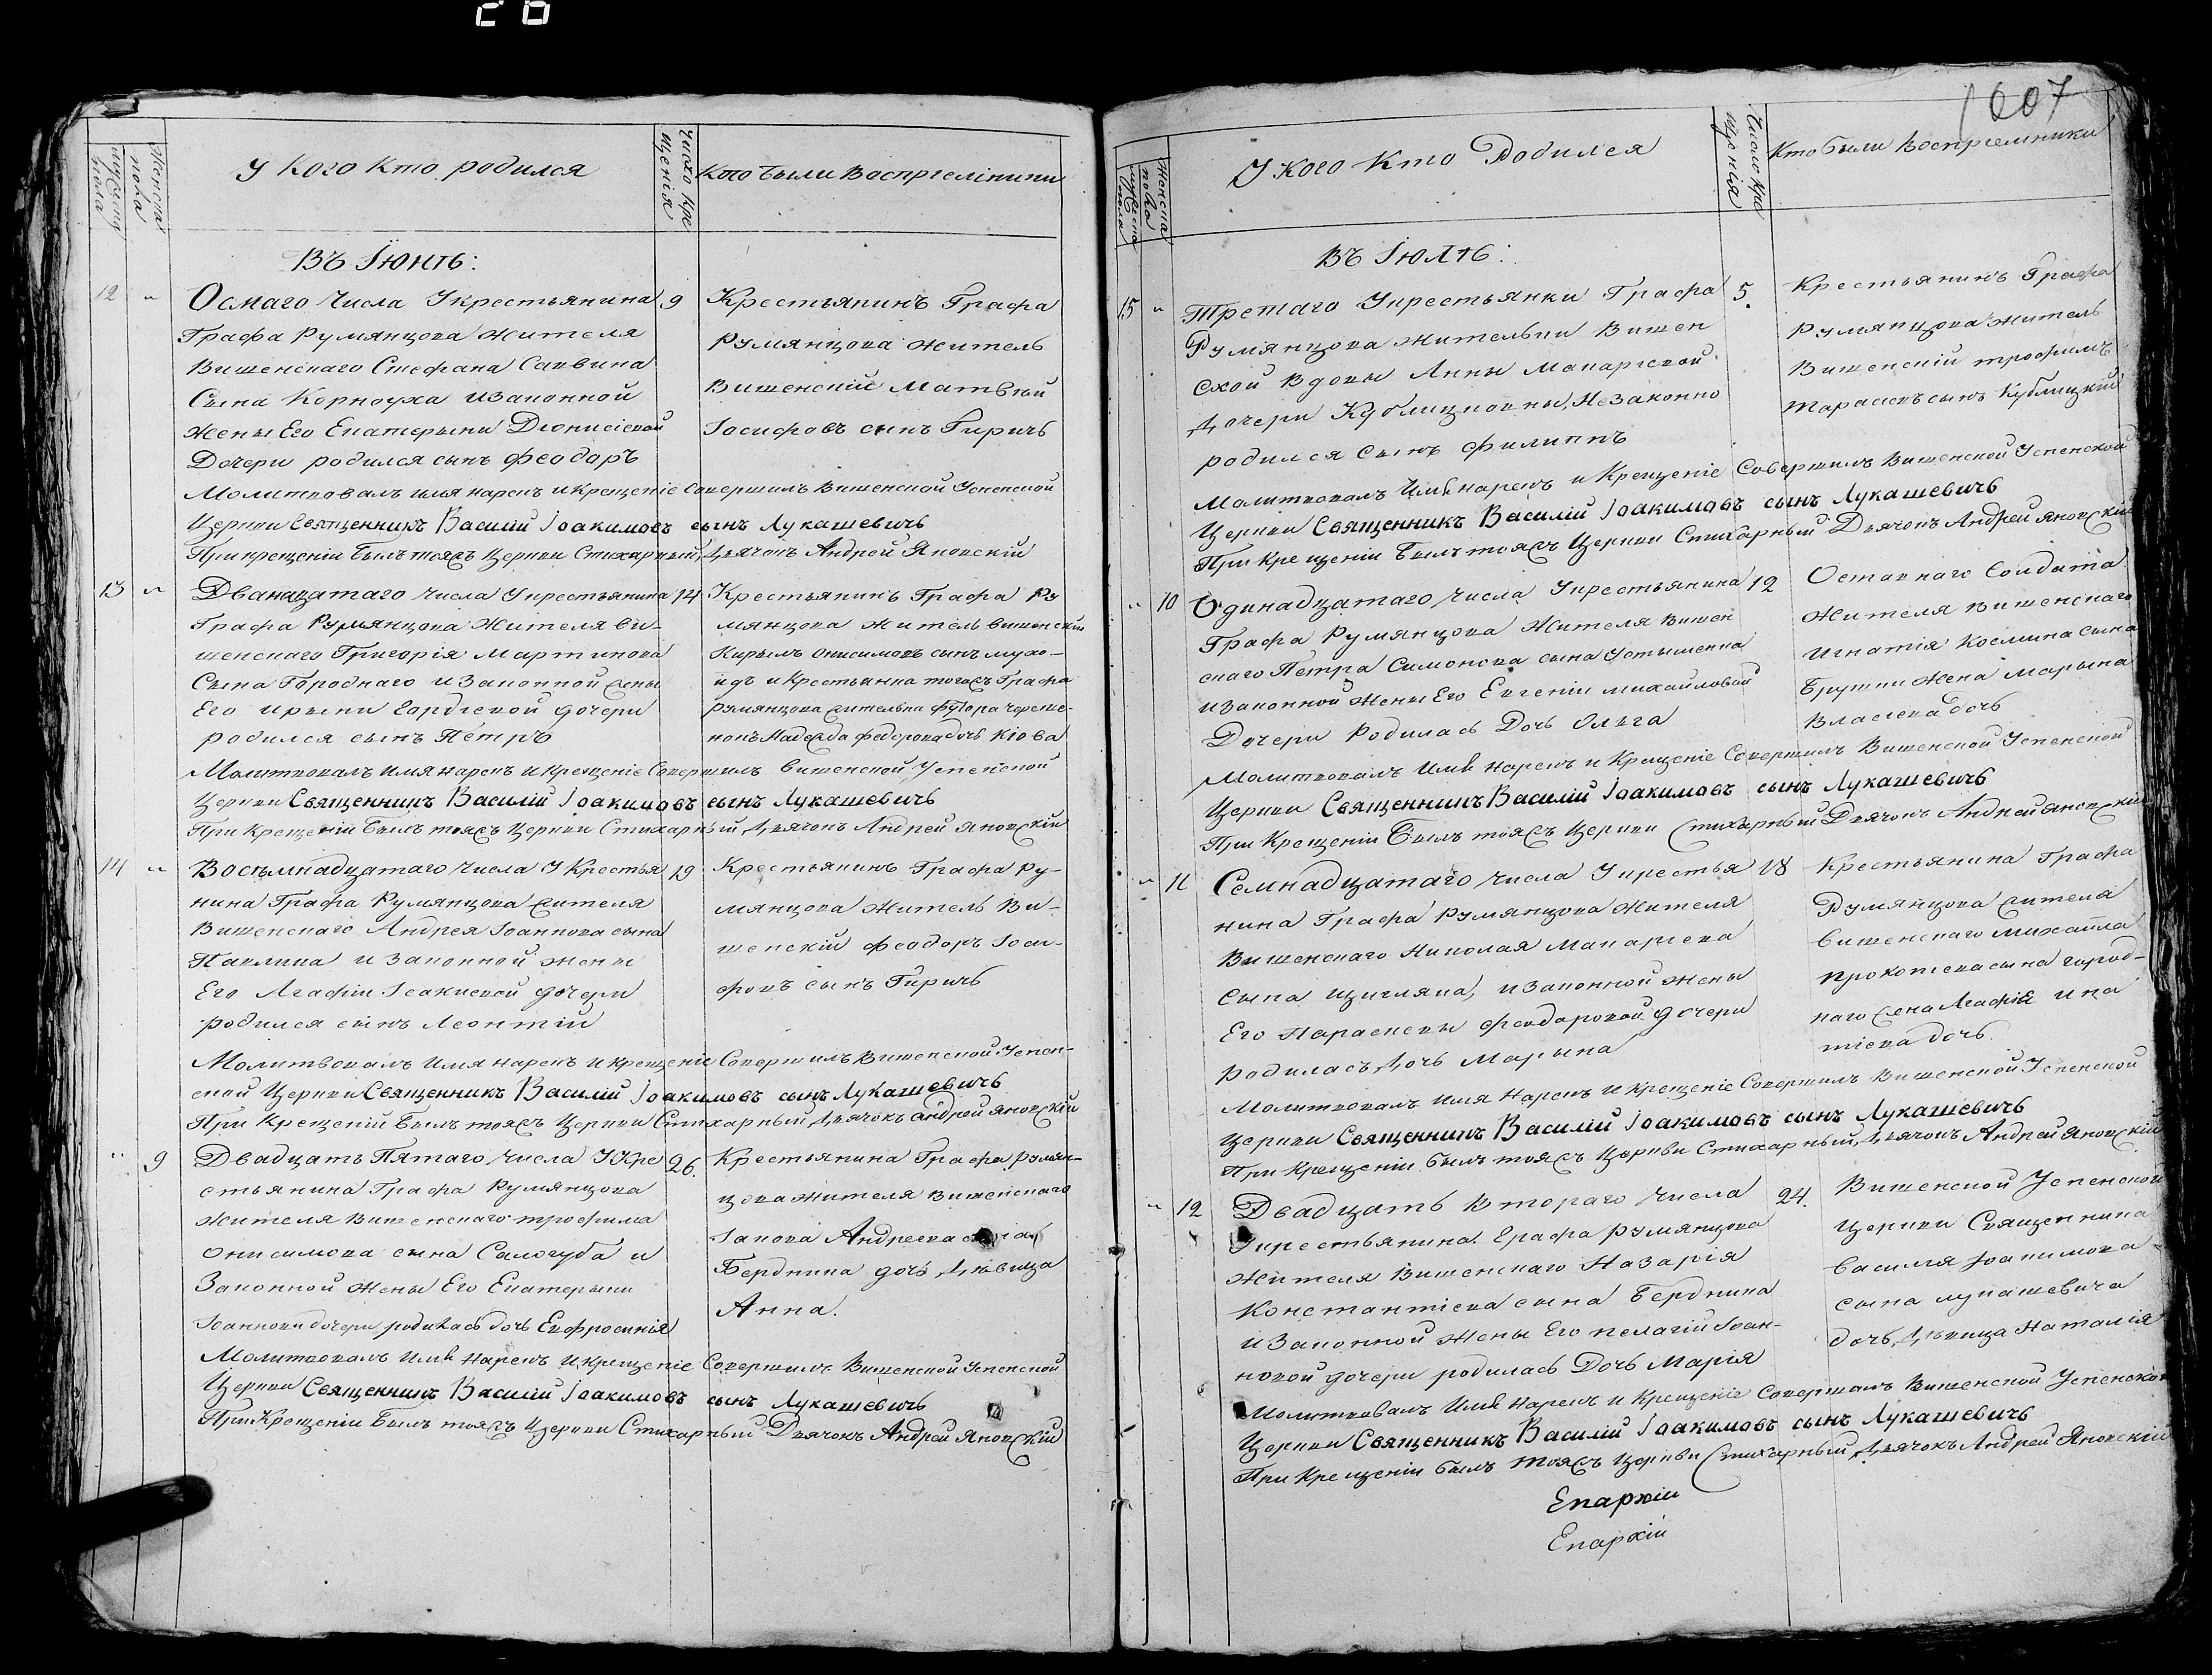 20
Мужеска пола
Женска пола
У Кого Кто родился
Число Кре
щенія
Кто были Воспріемники
Въ Іюнѣ:
12 „ Осмаго Числа У крестьянина 9
Графа Румянцова Жителя
Вишенскаго Стефана Саввина
Сына Корноуха и Законной
Жены Его Екатерыны Діонисіевой
Дочери родился сынъ Феодоръ
Крестьянинъ Графа
Румянцова житель
Вишенскій Матвѣй
Іосифовъ сынъ Гиричь
Молитвовалъ имя нарекъ и крещеніе Совершилъ Вишенской Успенской
Церкви Священникъ Василій Іоакимовъ сынъ Лукашевичь
При крещеніи былъ тояжъ Церкви Стихарный Дьячокъ Андрей Яновскій
13 „ Дванадцатаго Числа У крестьянина 14
Графа Румянцова Жителя ви-
шенскаго Григорія Мартинова
Сына Городнаго и Законной жены
Его Ирыни Гордіевой дочери
родился сынъ Пётръ
Крестьянинъ Графа Ру
мянцова житель вишенскій
Кирылъ Онисимовъ сынъ
и Крестьянка тогожъ Графа
Румянцова жителька Футора
Надежда Федорова дочь
Молитвовалъ имя нарекъ и Крещеніе Совершилъ вишенской Успенской
Церкви Священникъ Василій Іоакимовъ сынъ Лукашевичь
При Крещеніи былъ тояжъ Церкви Стихарный Дьячокъ Андрей Яновскій
14 „ Восъмнадцатаго Числа У Крестья 19
нина Графа Румянцова жителя
Вишенскаго Андрея Іоаннова сына
Павлика и Законной жены
Его Агафіи Ісакиевой дочери
родился сынъ Леонтій
Крестьянинъ Графа Ру-
мянцова Житель Ви-
шенскій Феодоръ Іоси-
фовъ сынъ Гиричь
Молитвовалъ Имя нарекъ и крещеніе Совершилъ Вишенской Успен-
ской Церкви Священникъ Василій Іоакимовъ сынъ Лукашевичь
При Крещеній былъ тояжъ Церкви Стихарный Дьячокъ андрей яновскій
„ 9 Двадцать Пятаго Числа У Кре 26.
стьянина Графа Румянцова
жителя вишенскаго трофима
Онисимова сына Салогуба и
Законной Жены Его Екатерыны
Іоанновы дочери родилась дочь Евфросинія
Крестьянина Графа Румян-
цова жителя вишенскаго
Іакова Андреева
Бердника дочь Дѣвица
Анна.
Молитвовалъ Имя Нарекъ и крещеніе Совершилъ Вишенской Успенской
Церкви Священникъ Василій Іоакимовъ сынъ Лукашевичь
При Крещеніи былъ тояжъ Церкви Стихарный Дьячокъ Андрей Яновскій
1607
Мужеска пола
Женска пола
У Кого Кто Родился
Число Кре
щенія
Кто были Воспріемники
Въ Іюлѣ:
15 „ Третаго У крестьянки Графа 5.
Румянцова жительки Вишен
ской вдовы Анны Макаріевой
Дочери Кублицковны, Незаконно
родился Сынъ Филиппъ
Крестьянинъ Графа
Румянцова житель
Вишенскій трофимъ
Тарасевъ сынъ Кублицкій
Молитвовалъ Имя нарекъ и Крещеніе Совершилъ Вишенской Успенской
Церкви Священникъ Василій Іоакимовъ сынъ Лукашевичь
При крещеніи Былъ тояжъ Церкви Стихарный Дьячокъ Андрей яновскій
„ 10 Одинадцатаго Числа У крестьянина 12
Графа Румянцова Жителя Вишен
скаго Петра Симонова сына Устыменка
и Законной Жены Его Евгеніи михайловой
Дочери Родилась Дочь Ольга
Оставнаго Солдата
Жителя вишенскаго
Игнатія Космина сына
Брушки жена марына
Власіева дочь
Молитвовалъ Имя нарекъ и Крещеніе Совершилъ Вишенской Успенской
Церкви Священникъ Василій Іоакимовъ сынъ Лукашевичь
При Крещеніи Былъ тояжъ Церкви Стихарный Дьячокъ Андрей яновскій
„ 11 Семнадцатаго Числа У крестья 18
нина Графа Румянцова Жителя
Вишенскаго Николая Макаріева
Сына Щигляка, и Законной жены
Его Параскевы Феодоровой дочери
родилась Дочь Марына
Крестьянина Графа
Румянцова жителя
вишенскаго михаила
Прокопіева сына город-
наго жена Агафія Игна
тіева дочь.
Молитвовалъ Имя Нарекъ и крещеніе Совершилъ Вишенской Успенской
Церкви Священникъ Василій Іоакимовъ сынъ Лукашевичь
При Крещеніи былъ тояжъ Церкви Стихарный Дьячокъ Андрей Яновскій
„ 12 Двадцать втораго Числа 24.
У крестьянина Графа Румянцова
Жителя Вишенскаго Назарія
Константіева сына Бердника
и Законной Жены Его пелагіи Іоан-
новой дочери родилась Дочь Марія
Вишенской Успенской
Церкви Священника
Василія Іоакимова
сына лукашевича
дочь, Дѣвица Наталія
Молитвовалъ Имя Нарекъ и Крещеніе Совершилъ Вишенской Успенской
Церкви Священникъ Василій Іоакимовъ сынъ Лукашевичь
При Крещеніи былъ тояжъ Церкви Стихарный Дьячокъ Андрей Яновскій
Епархіи
Епархіи